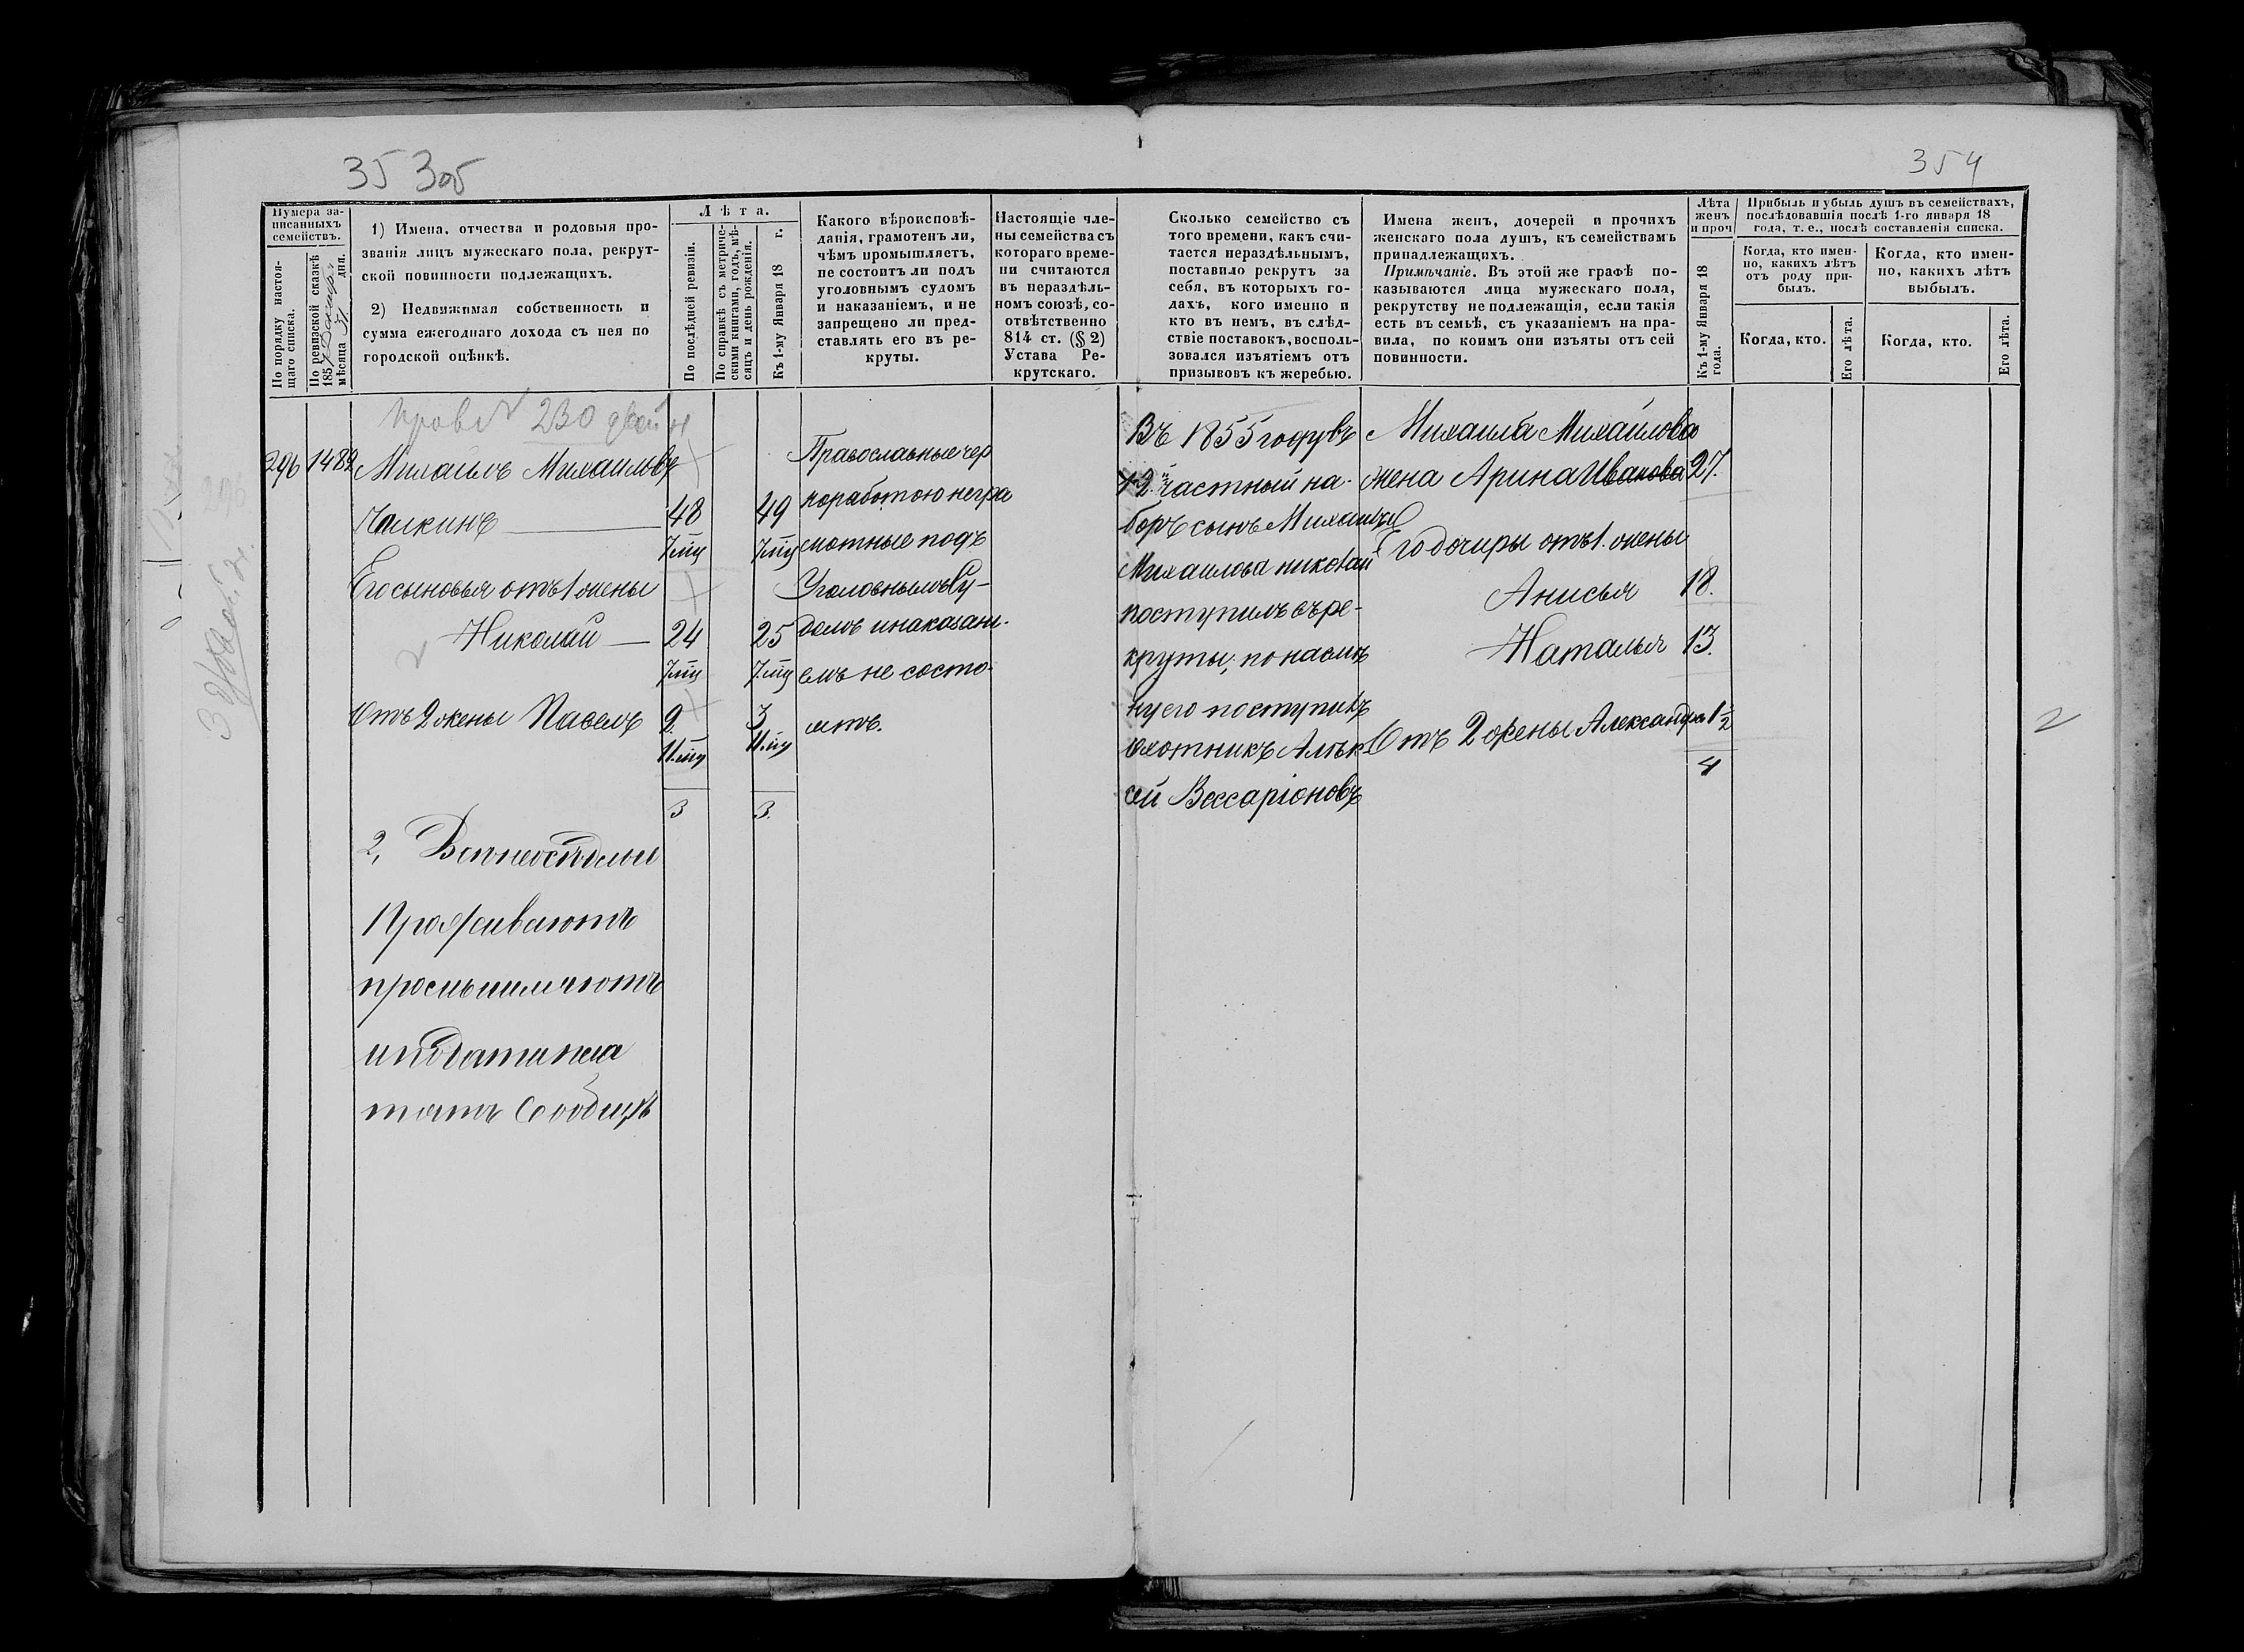 353об
354
Нумера за-
писанныхъ
семействъ.
По порядку настоя-
щаго списка.
По ревизской сказкѣ
185
мѣсяца 31 дня.
1) Имена, отчества и родовыя про-
званія лицъ мужескаго пола, рекрут-
ской повинности подлежащихъ.
2) Недвижимая собственность и
сумма ежегоднаго дохода съ нея по
городской оцѣнкѣ.
Лѣта.
По послѣдней ревизіи.
По справкѣ съ метриче-
скими книгами, годъ, мѣ-
сяцъ и день рожденія.
Къ 1-му Января 18 г.
Какого вѣроисповѣ-
данія, грамотенъ ли,
чѣмъ промышляетъ,
не состоитъ ли подъ
уголовнымъ судомъ
и наказаніемъ, и не
запрещено ли пред-
ставлять его въ ре-
круты.
Настоящіе чле-
ны семейства съ
котораго време-
ни считаются
въ нераздѣль-
номъ союзѣ, со-
отвѣтственно
814 ст. (§ 2)
Устава Ре-
крутскаго.
Сколько семейство съ
того времени, какъ счи-
тается нераздѣльнымъ,
поставило рекрутъ за
себя, въ которыхъ го-
дахъ, кого именно и
кто въ немъ, въ слѣд-
ствіе поставокъ, восполь-
зовался изъятіемъ отъ
призывовъ къ жеребью.
Имена женъ, дочерей и прочихъ
женскаго пола душъ, къ семействамъ
принадлежащихъ.
Примѣчаніе. Въ этой же графѣ по-
казываются лица мужескаго пола,
рекрутству не подлежащія, если такія
есть въ семьѣ, съ указаніемъ на пра-
вила, по коимъ они изъяты отъ сей
повинности.
Лѣта
женъ
и проч
Къ 1-му Января 18
года.
Прибыль и убыль душъ въ семействахъ,
послѣдовавшія послѣ 1-го января 18
года, т. е., послѣ составленія списка.
Когда, кто имен-
но, какихъ лѣтъ
отъ роду при-
былъ.
Когда, кто имен-
но, какихъ лѣтъ
выбылъ.
Когда, кто.
Его лѣта.
Когда, кто.
Его лѣта.
230
296 1489 Михайло Михаиловъ
48 49
7 мц 7 мц
Его сыновья отъ 1 жены
Николай 24 25
7 мц 7 мц
Отъ 2 жены Павелъ 2. 3
11. мц 11. мц
3 3.
2,
Проживаютъ
промышляютъ
и подати пла
тятъ Сообща
Православные чер
норабочею негра
мотные подъ
Уголовнымъ Су-
домъ и наказані-
емъ не состо-
итъ.
Въ 1855 году въ
12й частный на-
боръ сынъ Михаила
Михаилова николай
поступилъ въ ре-
круты; по найму
за него поступилъ
охотникъ Алѣк
сѣй Вессаріоновъ
Михаила Михаилова
жена Арина Иванова 27.
Его дочиры отъ 1. жены
Анисья 18.
Наталья 13.
Отъ 2 жены Александра 1 1/2
4